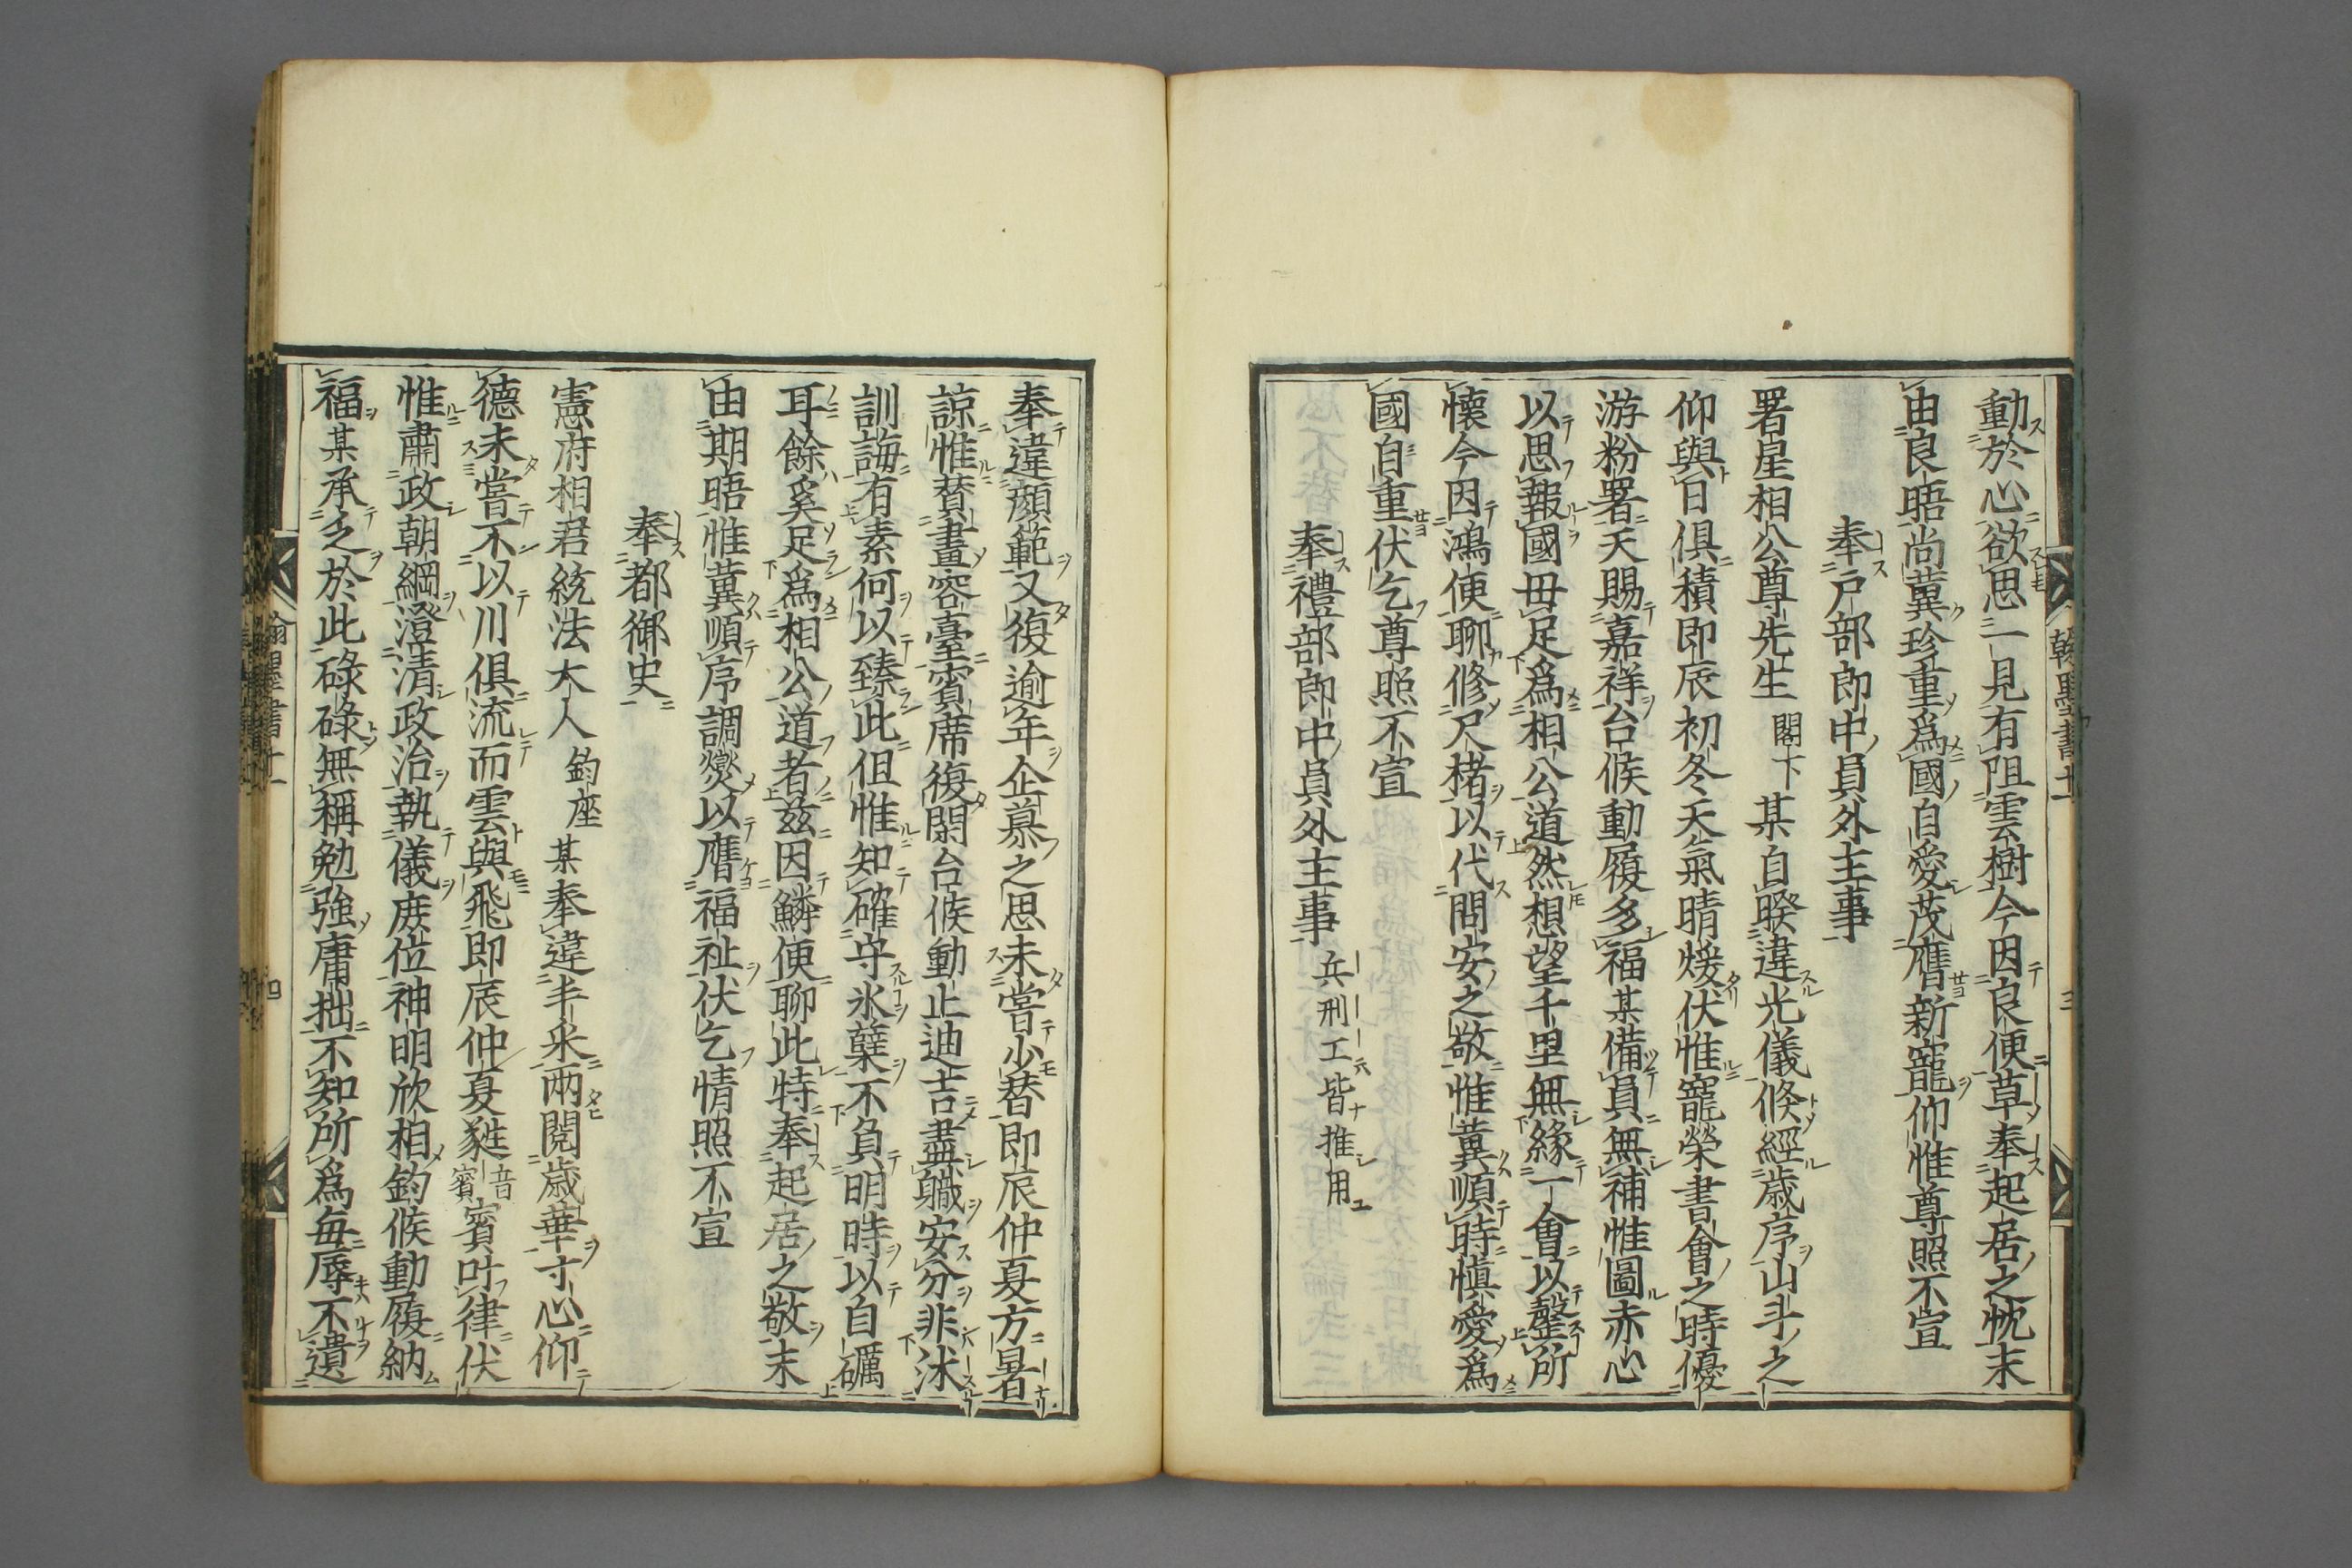 動於心欲思一見有阻雲樹今因良便草奉起居之忱末
由良晤尚冀珍重爲國自愛茂膺新寵仰惟尊照不宣
奉戸部郎中員外主事
署星相公尊先生閣下某自暌違光儀倐經歳序山斗之
仰與日俱積即辰初冬天氣晴煖伏惟寵榮書會之時優
游粉署天賜嘉祥台候動履多福某備員無補惟圖赤心
以思報國毋足爲相公道然想望千里無緣一會以罄所
懷今因鴻便聊修尺楮以代問安之敬惟冀順時愼愛爲
國自重伏乞尊照不宣
奉禮部郎中員外主事兵刑工皆推用
奉違顔範又復逾年企慕之思未嘗少替即辰仲夏方暑
諒惟賛畫容臺賓席復閑台候動止迪吉盡職安分非沐
訓誨有素何以臻此但惟知確守氷蘖不負明時以自礪
耳餘奚足爲相公道者兹因鱗便聊此特奉起居之敬末
由期晤惟冀順序調爕以膺福祉伏乞情照不宣
奉都御史
憲府相君統法大人鈞座某奉違丰采兩閲歳華寸心仰
德未嘗不以川俱流而雲與飛即辰仲夏蕤音賓賓叶律伏
惟肅政朝綱澄清政治執儀庻位神明欣相鈞候動履納
福某承乏於此碌碌無稱勉強庸拙不知所爲毎辱不遺